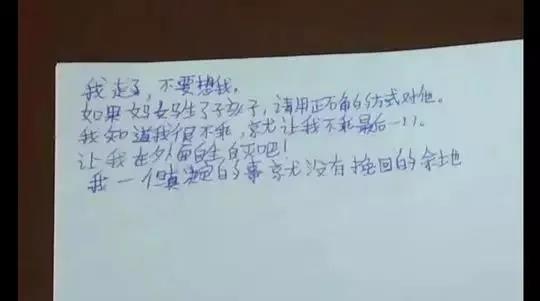 我走了,不要想我。
如果妈妈生了孩子,请用正确的方式对他。
我知道我很不乖,就让我不乖最后一次。
让我在外面自生自灭吧!
我一但决定的事就没有挽回的余地